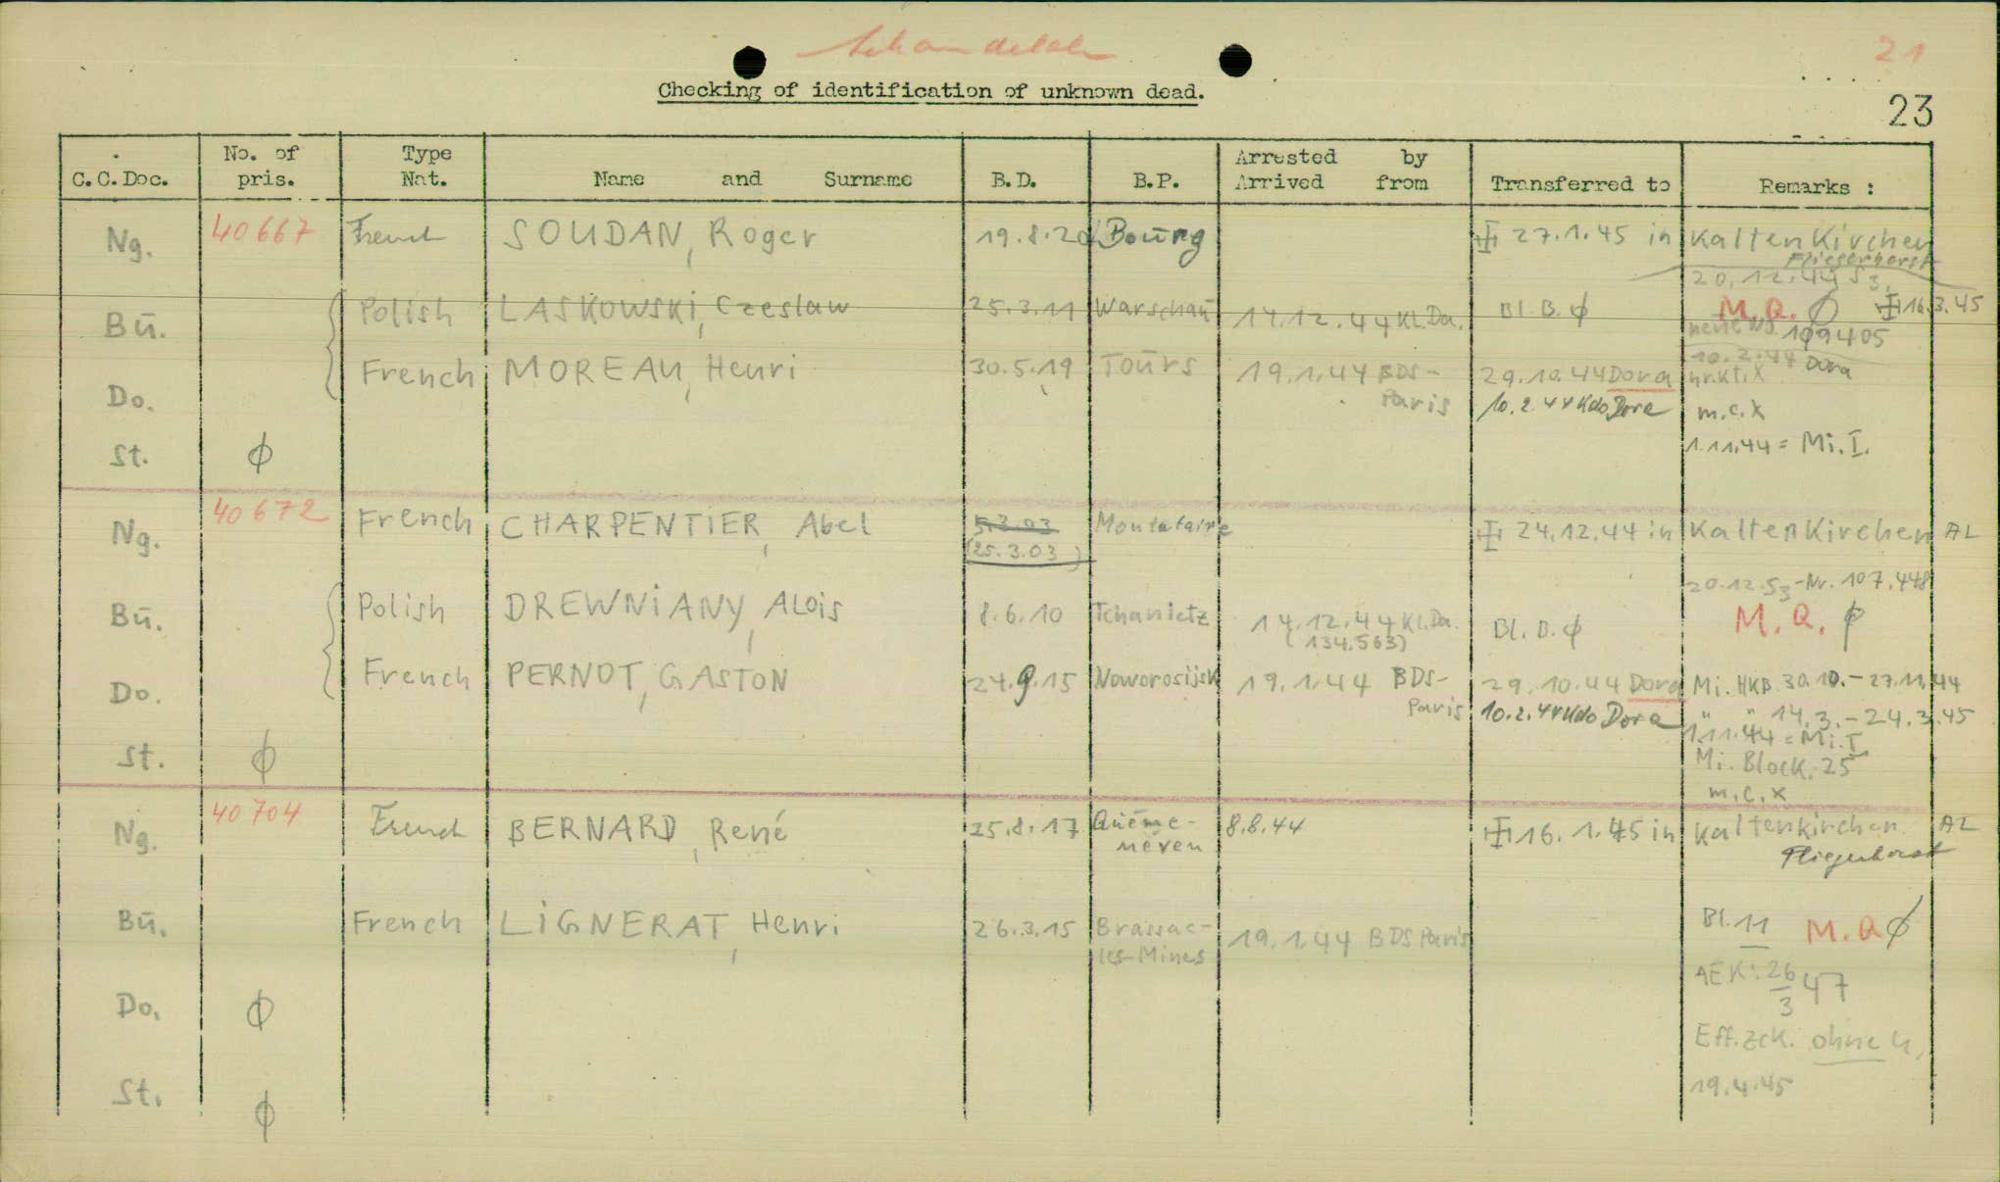 Schandelah
21
Checking of identification of unknown dead.
23
C.C.Doc. No. of pris. Type Nat. Name and Surname B.D. B.P. Arrested by Arrived from Transferred to Remarks :
Ng. 40667 French SOUDAN, Roger 19.8.20 Bourg 27.1.45 in Kaltenkirchen
Fliegerhorst
20.12.44
Bū. Polish LASKOWSKI, Czeslaw 25.3.11 Warschau 14.12.44 Kl.Da. Bl. B. ϕ M.Q. ϕ 16.3.45
neue No. 109405
10.2.44 Dora
Do. French MOREAU, Henri 30.5.19 Tours 19.1.44 BDS-Paris 29.10.44 Dora
10.2.44 Kdo Dora m.c.x
St. ϕ 1.11.44 = Mi.I.
Ng. 40672 French CHARPENTIER, Abel 5.3.03 Montataire 24.12.44 in Kaltenkirchen AL
(25.3.03)
20.12.53-Nr. 107.448
Bū. Polish DREWNiANY, ALois 8.6.10 Tchanietz 14.12.44 Kl.Da. Bl. B. ϕ M.Q. ϕ
(134.563)
Do. French PERNOT, GASTON 24.9.15 Noworosijsk 19.1.44 BDS-Paris 29.10.44 Dora Mi. HKB 30.10.-27.11.44
10.2.44 Kdo Dora " " 14.3.-24.3.45
1.11.44 = Mi.I
St. ϕ Mi. Block. 25
m.c.x
Ng. 40704 French BERNARD, René 25.8.17 Quéme-néven 8.8.44 16.1.45 in Kaltenkirchen AL
Fliegerhorst
Bū. French LiGNERAT, Henri 26.3.15 Brassac-les-Mines 19.1.44 BDS Paris Bl. 11 M.Q ϕ
AEK: 26/3 47
Do. ϕ
Eff.zck. ohne U,
St. ϕ 19.4.45